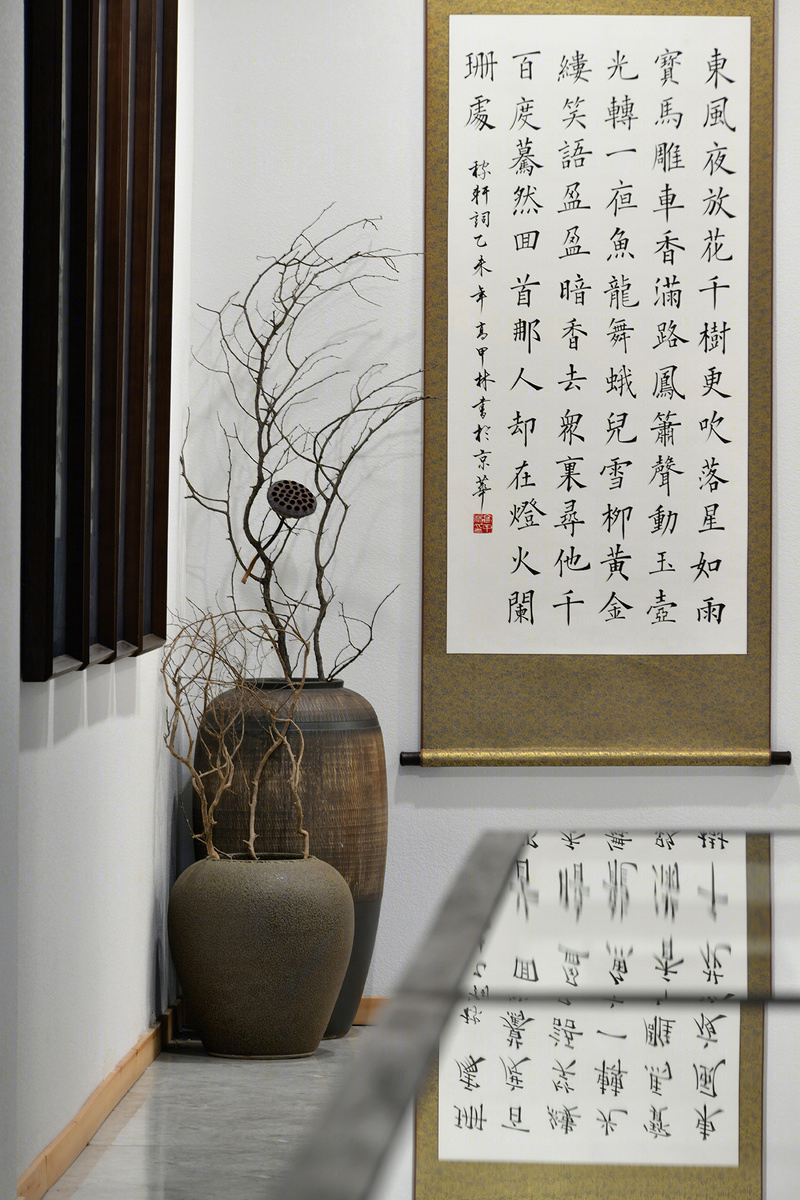 東風夜放花千樹更吹落星如雨
寶馬雕車香滿路鳳簫聲動玉壺
光轉一亱魚龍舞蛾兒雪柳黃金
縷笑語盈盈暗香去衆裏尋他千
百度驀然囬首那人却在燈火闌
珊處
稼軒詞乙未年高甲林書於京華